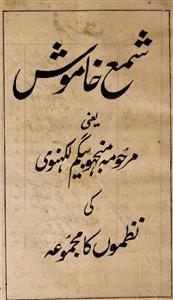 شمع خاموش
یعنی
مرحومہ منجھو بیگم لکھنوی
کی
نظموں کا مجموعہ